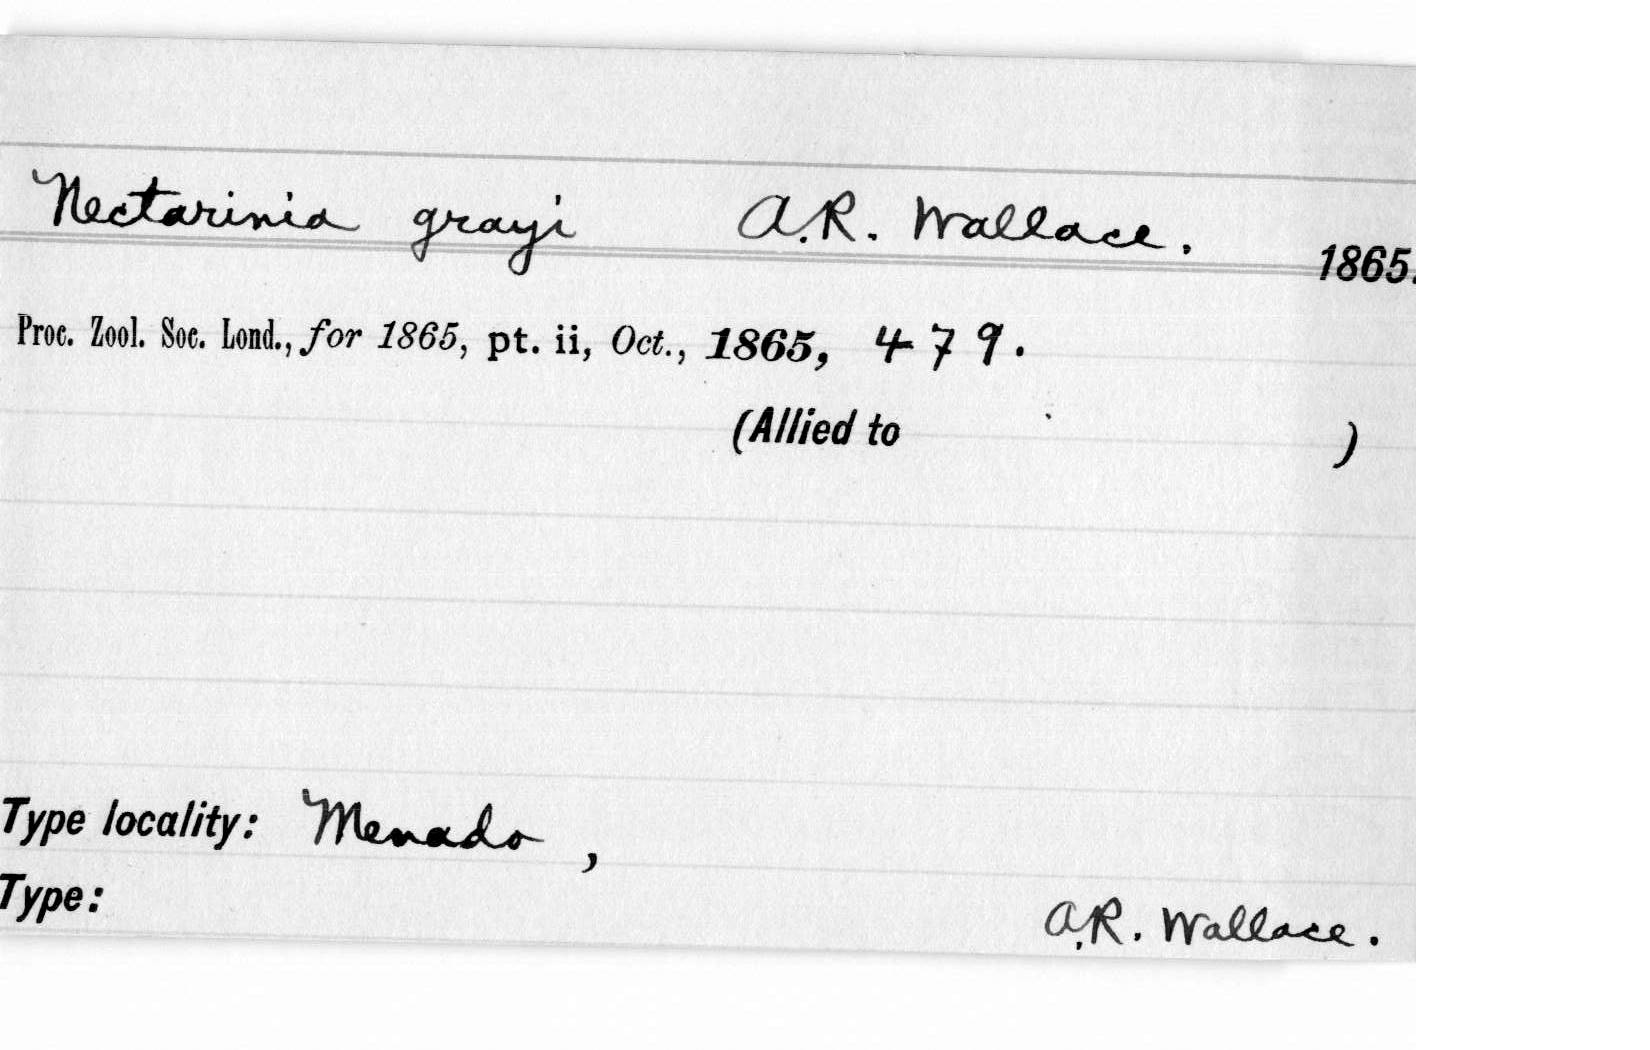 Nectarinia grayi A.R. Wallace. 1865.
Proc. Zool. Soc. Lond., for 1865, pt. ii, Oct., 1865, 479.
(Allied to )
Type locality: Menado ,
Type: A.R. Wallace.